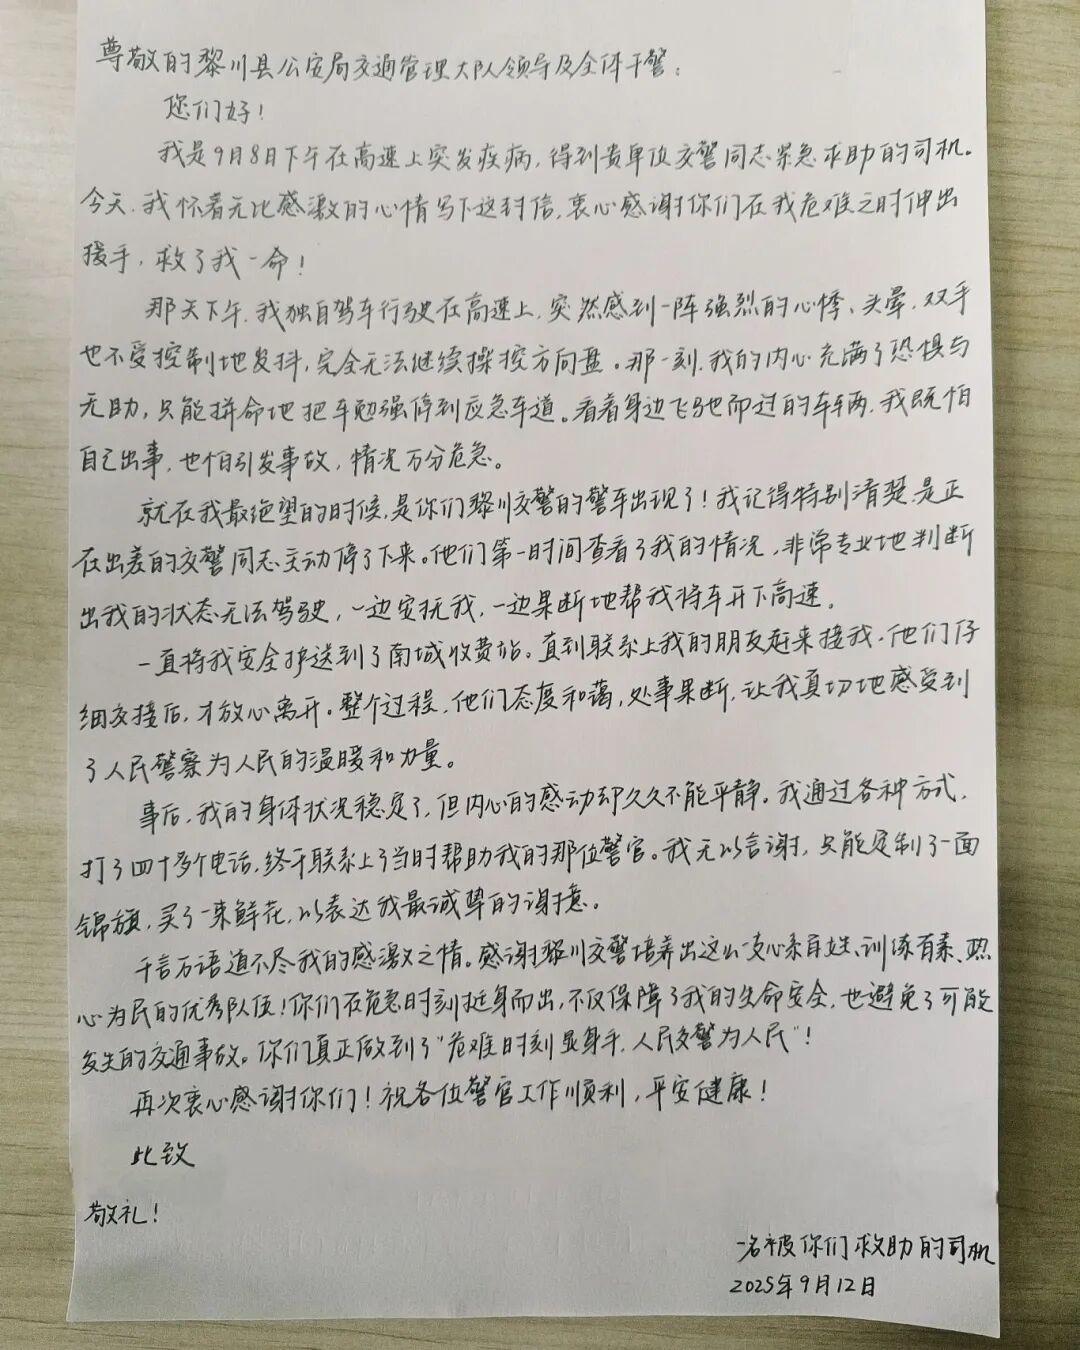 尊敬的黎川县公安局交通管理大队领导及全体干警：
您们好！
我是9月8日下午在高速上突发疾病，得到贵单位交警同志紧急求助的司机。
今天，我怀着无比感激的心情写下这封信，衷心感谢你们在我危难之时伸出
援手，救了我一命！
那天下午，我独自驾车行驶在高速上，突然感到一阵强烈的心悸、头晕，双手
也不受控制地发抖，完全无法继续操控方向盘。那一刻，我的内心充满了恐惧与
无助，只能拼命地把车勉强停到应急车道。看着身边飞驰而过的车辆，我既怕
自己出事，也怕引发事故，情况万分危急。
就在我最绝望的时候，是你们黎川交警的警车出现了！我记得特别清楚，是正
在出差的交警同志主动停了下来。他们第一时间查看了我的情况，非常专业地判断
出我的状态无法驾驶，一边安抚我，一边果断地帮我将车开下高速。
一直将我安全护送到了南城收费站。直到联系上我的朋友赶来接我，他们仔
细交接后，才放心离开。整个过程，他们态度和蔼，处事果断，让我真切地感受到
了人民警察为人民的温暖和力量。
事后，我的身体状况稳定了，但内心的感动却久久不能平静。我通过各种方式，
打了四十多个电话，终于联系上了当时帮助我的那位警官。我无以言谢，只能定制了一面
锦旗，买了一束鲜花，以表达我最诚挚的谢意。
千言万语道不尽我的感激之情。感谢黎川交警培养出这么一支心系百姓、训练有素、热
心为民的优秀队伍！你们在危急时刻挺身而出，不仅保障了我的生命安全，也避免了可能
发生的交通事故。你们真正做到了“危难时刻显身手，人民交警为人民”！
再次衷心感谢你们！祝各位警官工作顺利，平安健康！
此致
敬礼！
一名被你们救助的司机
2025年9月12日